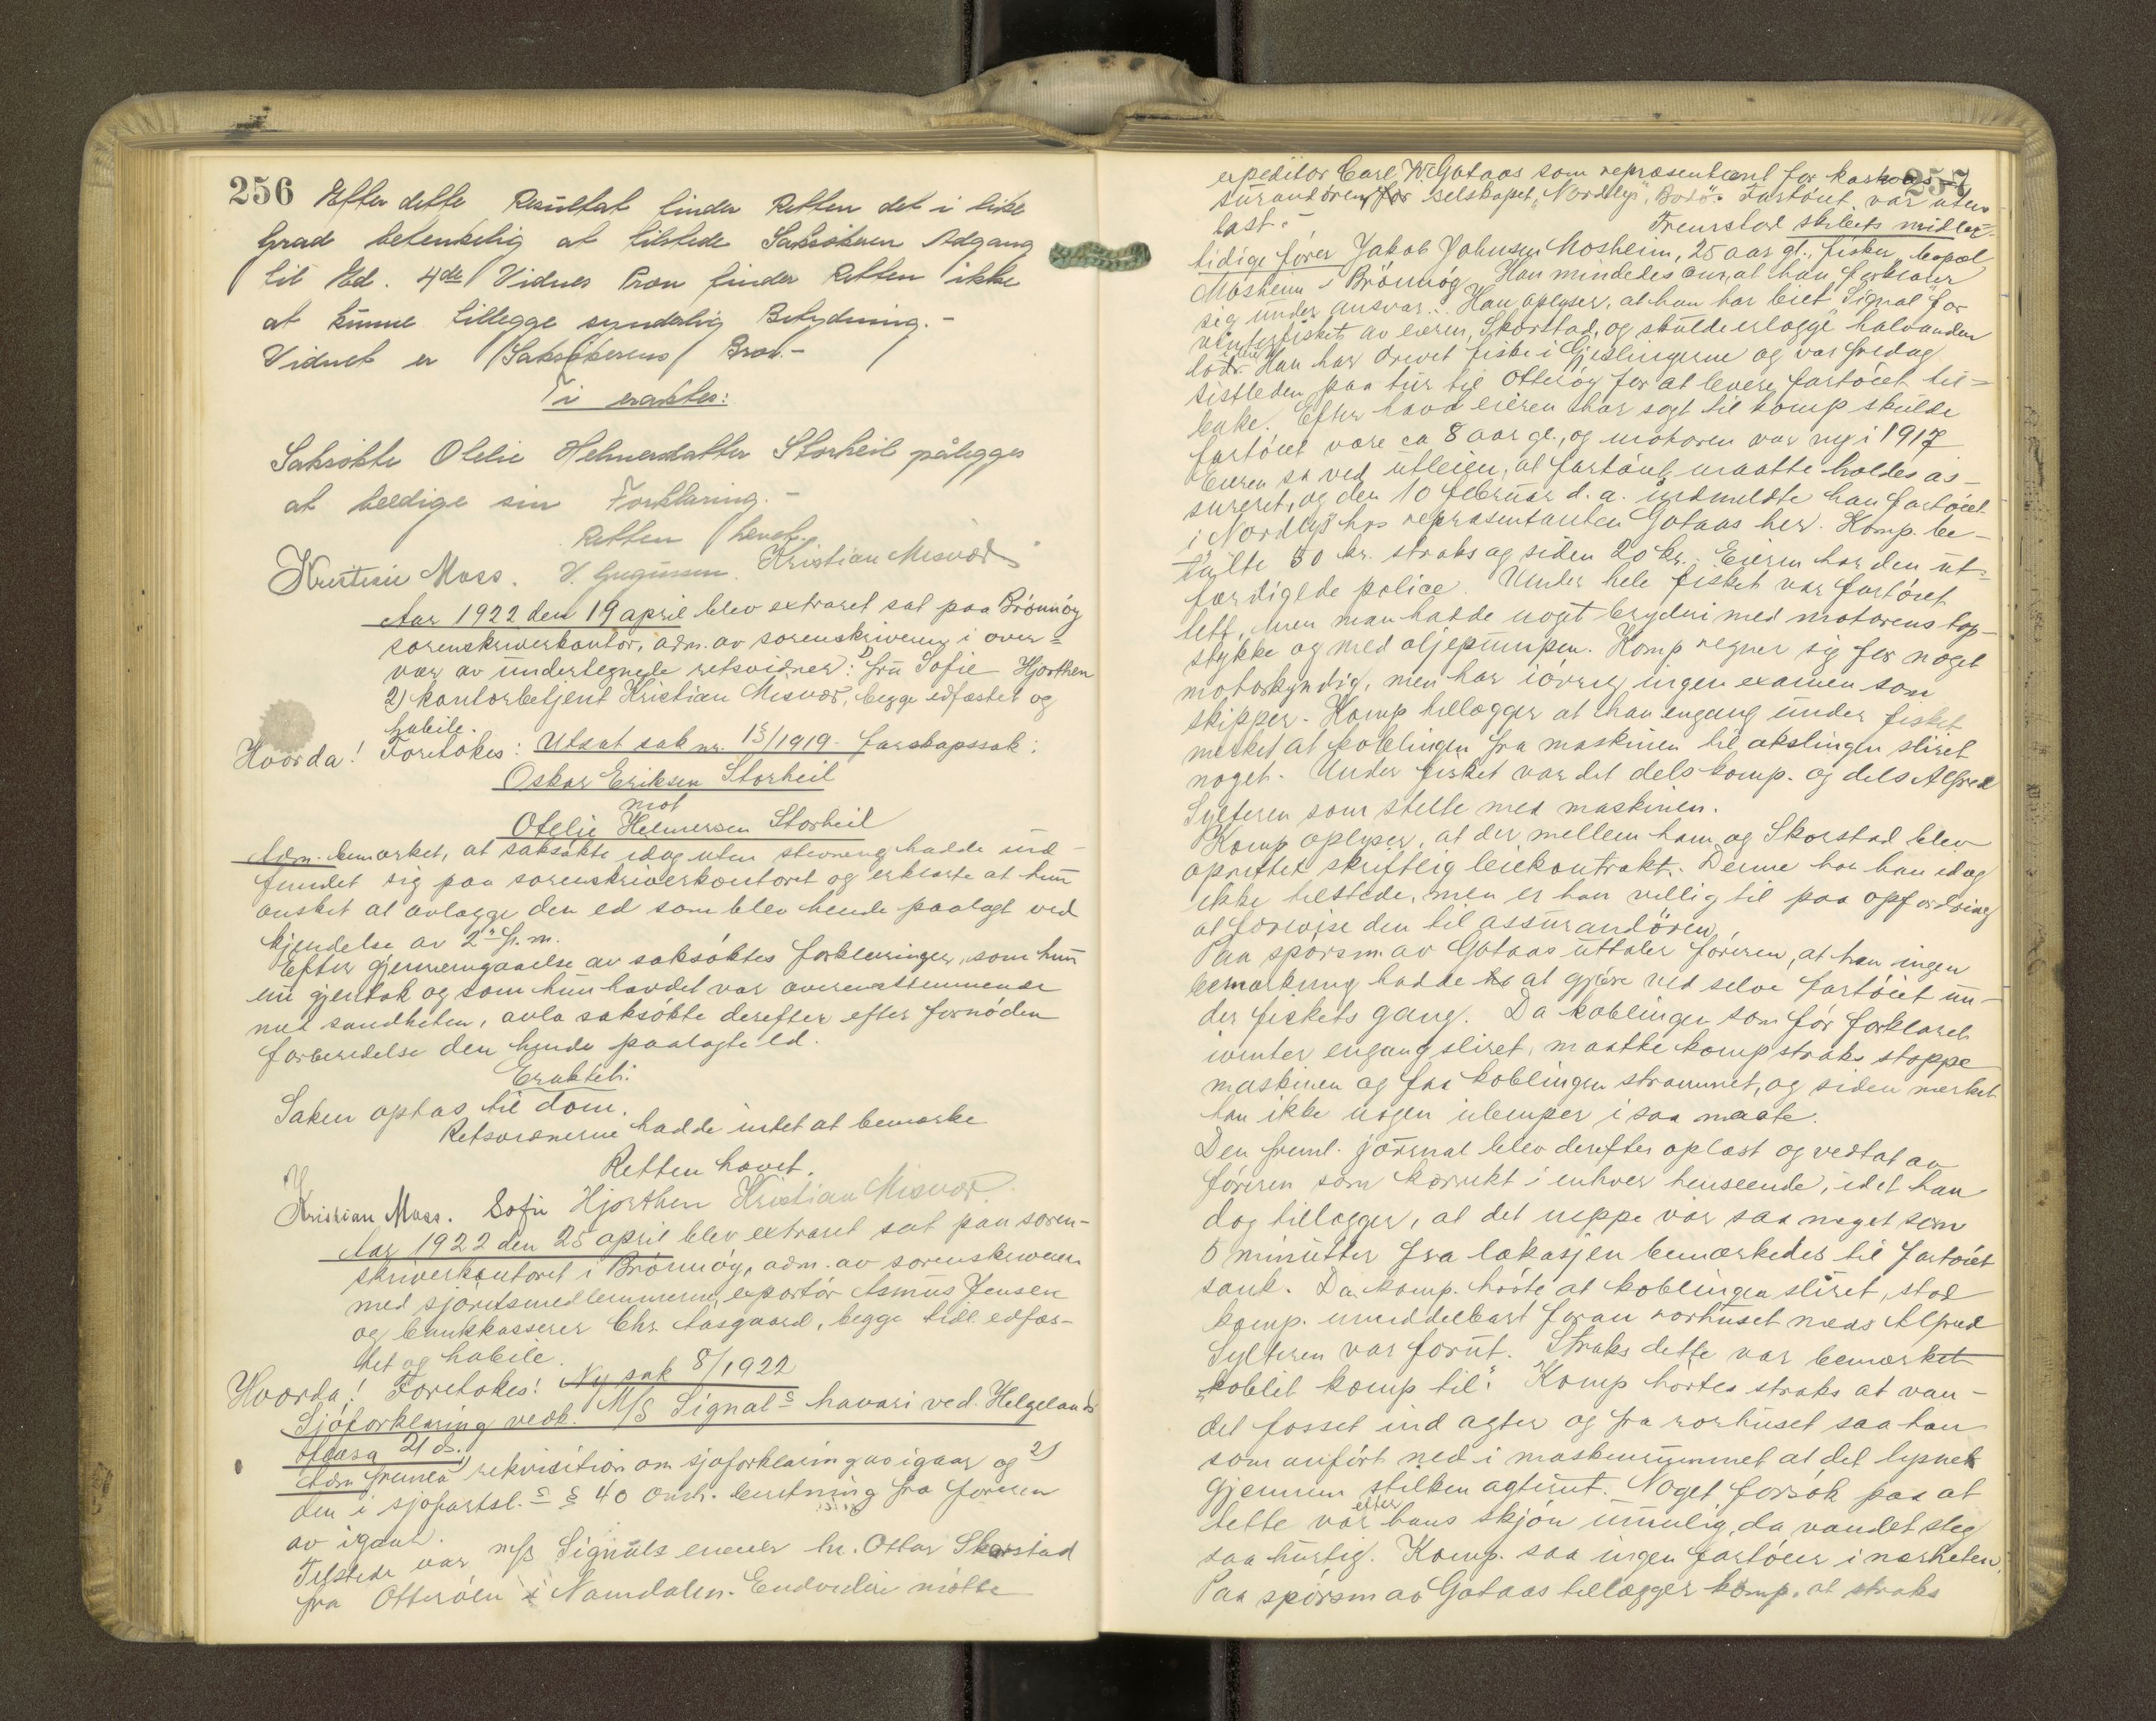 256
Efter dette Resultat finder Retten det i like
Grad betenkelig at tilstede Saksökeren Adgang
til Ed. 4de Vidnes Prov finder Retten ikke
at kunne tillegge synderlig Betydning.-
Vidnet er Saksökerens Bror.-
Ti eragtes:
Saksökte Otelie Helmersdatter Storheil pålegges
at beedige sin Forklaring.-
Retten hevet.
Kristian Moss. Kristian Misvær
Aar 1922 den 19 april blev extraret sat paa Brönnöy
sorenskriverkontor, adm. av sorenskriveren i over=
vær av undertegnede retsvidner: 1) fru Sofie Hjorthen
2) kontorbetjent Kristian Misvær, begge edfæstet og
habile.
Hvorda! Foretokes: Utsat sak nr. 13/1919 farskapssak:
Oskar Eriksen Storheil
mot
Otelie Helmersen Storheil
Adm. bemerket, at saksökte idag uten stevning hadde ind-
fundet sig paa sorenskriverkontoret og erklærte at hun
önsket at avlægge den ed som blev hende paalagt ved
kjendelse av 2 f.m.
Efter gjennemgaaelse av saksöktes forklaringer, som hun
nu gjentok og som hun hævdet var overensstemmende
med sandheten, avla saksökte derefter efter fornöden
forberedelse den hende paalagte ed.
Eraktet:
Saken optas til dom.
Retsvidnerne hadde intet at bemerke
Retten hævet.
Kristian Moss. Sofie Hjorthen Kristian Misvær.
Aar 1922 den 25 april blev extraret sat paa soren-
skriverkontoret i Brönnöy, adm. av sorenskriveren
med sjöretsmedlemmerne, exportör Asmus Jensen
og bankkasserer Chr. Aasgaard, begge tidl. edfæs-
tet og habile.
Hvorda! Foretokes: Ny sak 8/1922
Sjöforklaring vedk. M/S Signals havari ved Helgelands
21 ds.
Adm fremla 1) rekvisition om sjöforklaring av igaar og 2)
den i sjöfartsl.s § 40 omh. beretning fra föreren
av igaar.
Tilstede var m/s Signals eier hr. Ottar Skorstad
fra Otteröen i Namdalen. Endvidere mötte
257
expeditör Carl W. Gotaas som repræsentant for kaskoas-
surandören for selskapet "Nordlys", Bodö. Fartöiet var uten
last.-
Fremstod skibets midler-
tidige förer Jakob Johnsen Mosheim, 25 aar gl., fisker, bopæl
Mosheim i Brönnöy. Han mindedes om, at han forklarer
sig under ansvar. Han oplyser, at han har leiet "Signal" for
vinterfisket av eieren, Skorstad, og skulde erlægge halvanden
lodd. Han har drevet fiske i Gjeslingerne og var fredag
sistleden paa tur til Otteröy for at levere fartöiet til=
bake. Efter hvad eieren har sagt til komp skulde
fartöiet være ca 8 aar gl., og motoren var ny i 1917
Eieren sa ved utleien, at fartöiet maatte holdes as-
sureret, og den 10 februar d.a. indmeldte han fartöiet
i Nordlys hos repræsentanten Gotaas her. Komp. be-
talte 50 kr. straks og siden 20 kr. Eieren har den ut-
færdigede police. Under hele fisket var fartöiet
tett, men man hadde nogt bryderi med motorens top-
stykke og med oljepumpen. Komp regner sig for noget
motorkyndig, men har iövrig ingen examen som
skipper. Komp tillægger at han engang under fisket
merket at koblingen fra maskinen til akslingen sliret
noget. Under fisket var det dels komp. og dels Alfred
Sylteren som stelte med maskinen.
Komp oplyser, at der mellem ham og Skorstad blev
oprettet skriftlig leiekontrakt. Denne har han idag
ikke tilstede, men er han villig til paa opfordring
at forevise den til assurandören.
Paa spörsm. av Gotaas uttaler föreren, at han ingen
bemerkning hadde at gjöre ved selve fartöiet un-
der fiskets gang. Da koblingen som för forklaret
ivinter engang sliret, maatte komp straks stoppe
maskinen og faa koblingen strammet, og siden merket
han ikke nogen ulemper i saa maate.
Den freml. jornal blev derefter oplæst og vedtat av
föreren som korrekt i enhver henseende, idet han
dog tillægger, at det neppe var saa meget som
5 minutter fra lækasjen bemerkedes til fartöiet
sank. Da komp. hörte at koblingen sliret, stod
komp. umiddelbart foran rorhuset mens Alfred
Sylteren var forut. Straks dette var bemerket
"koblet komp til". Komp hörtes straks at van-
det fosset ind agter og fra rorhuset saa han
som anfört ned i maskinrummet at det lysnet
gjennem stilken agterut. Noget forsök paa at
tette var efter hans skjön umulig, da vandet steg
saa hurtig. Komp. saa ingen fartöier i nærheten.
Paa spörsm av Gotaas tillægger komp. at straks